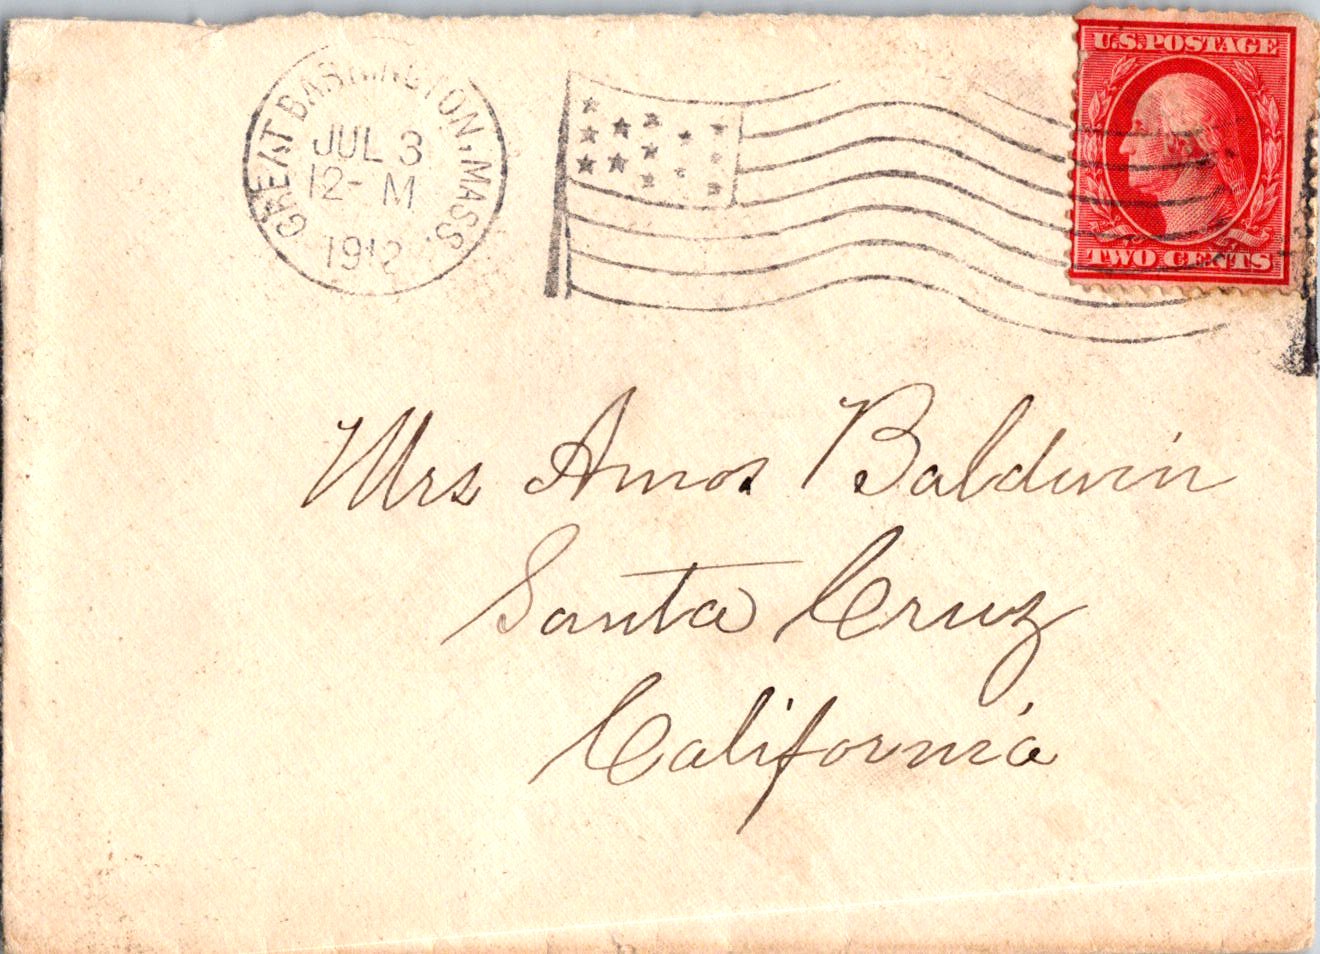 GREAT BARRINGTON, MASS.
JUL 3
12- M
1912
U.S. POSTAGE
TWO CENTS
Mrs Amos Baldwin
Santa Cruz
California